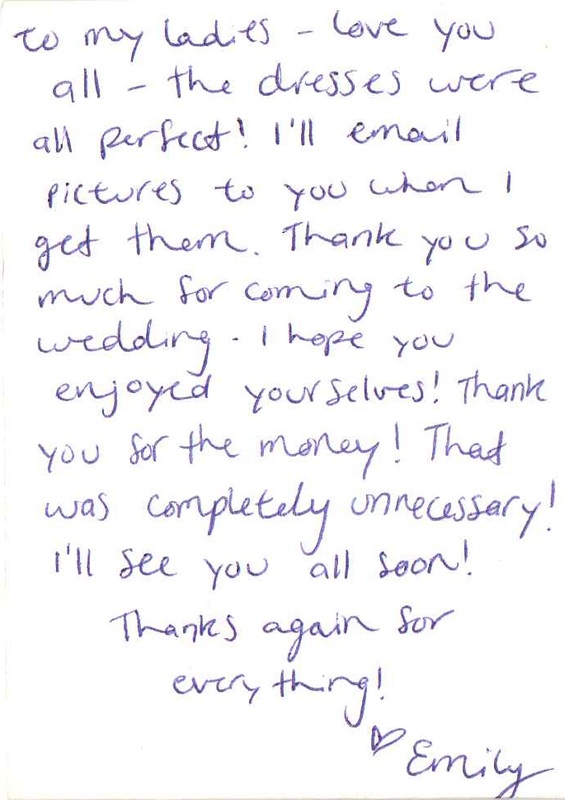 to my ladies - love you
all - the dresses were
all perfect! I'll email
pictures to you when I
get them. Thank you so
much for coming to the
wedding. I hope you
enjoyed yourselves! Thank
you for the money! That
was completely unnecessary!
I'll see you all soon!
Thanks again for
everything!
♡ Emily